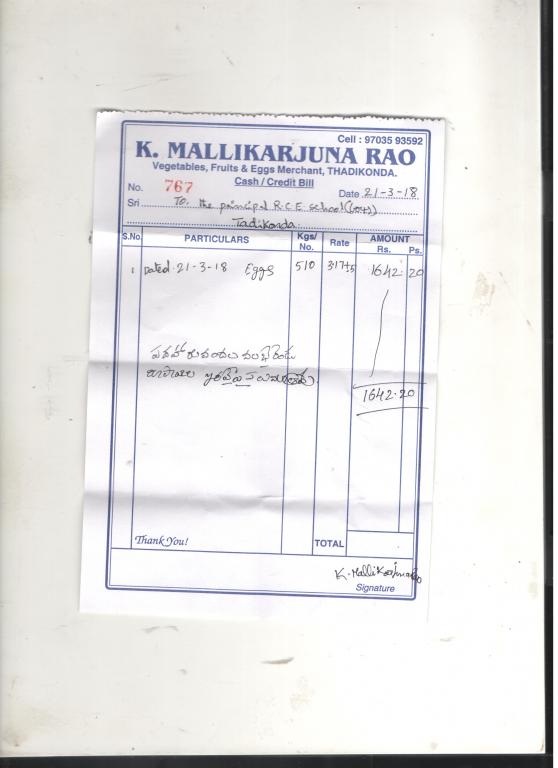 Cell : 97035 93592
K. MALLIKARJUNA RAO
Vegetables, Fruits & Eggs Merchant, THADIKONDA.
Cash / Credit Bill
No. 767 Date 21-3-18
Sri To. the principal R.C.E. school (boys)
Tadikonda.
S.No. PARTICULARS Kgs/No. Rate AMOUNT Rs. Ps.
1 Dated. 21-3-18 Eggs 510 1642. 20
రూపాయల
1642.20
Thank You! TOTAL
K. Mallikarjunarao
Signature